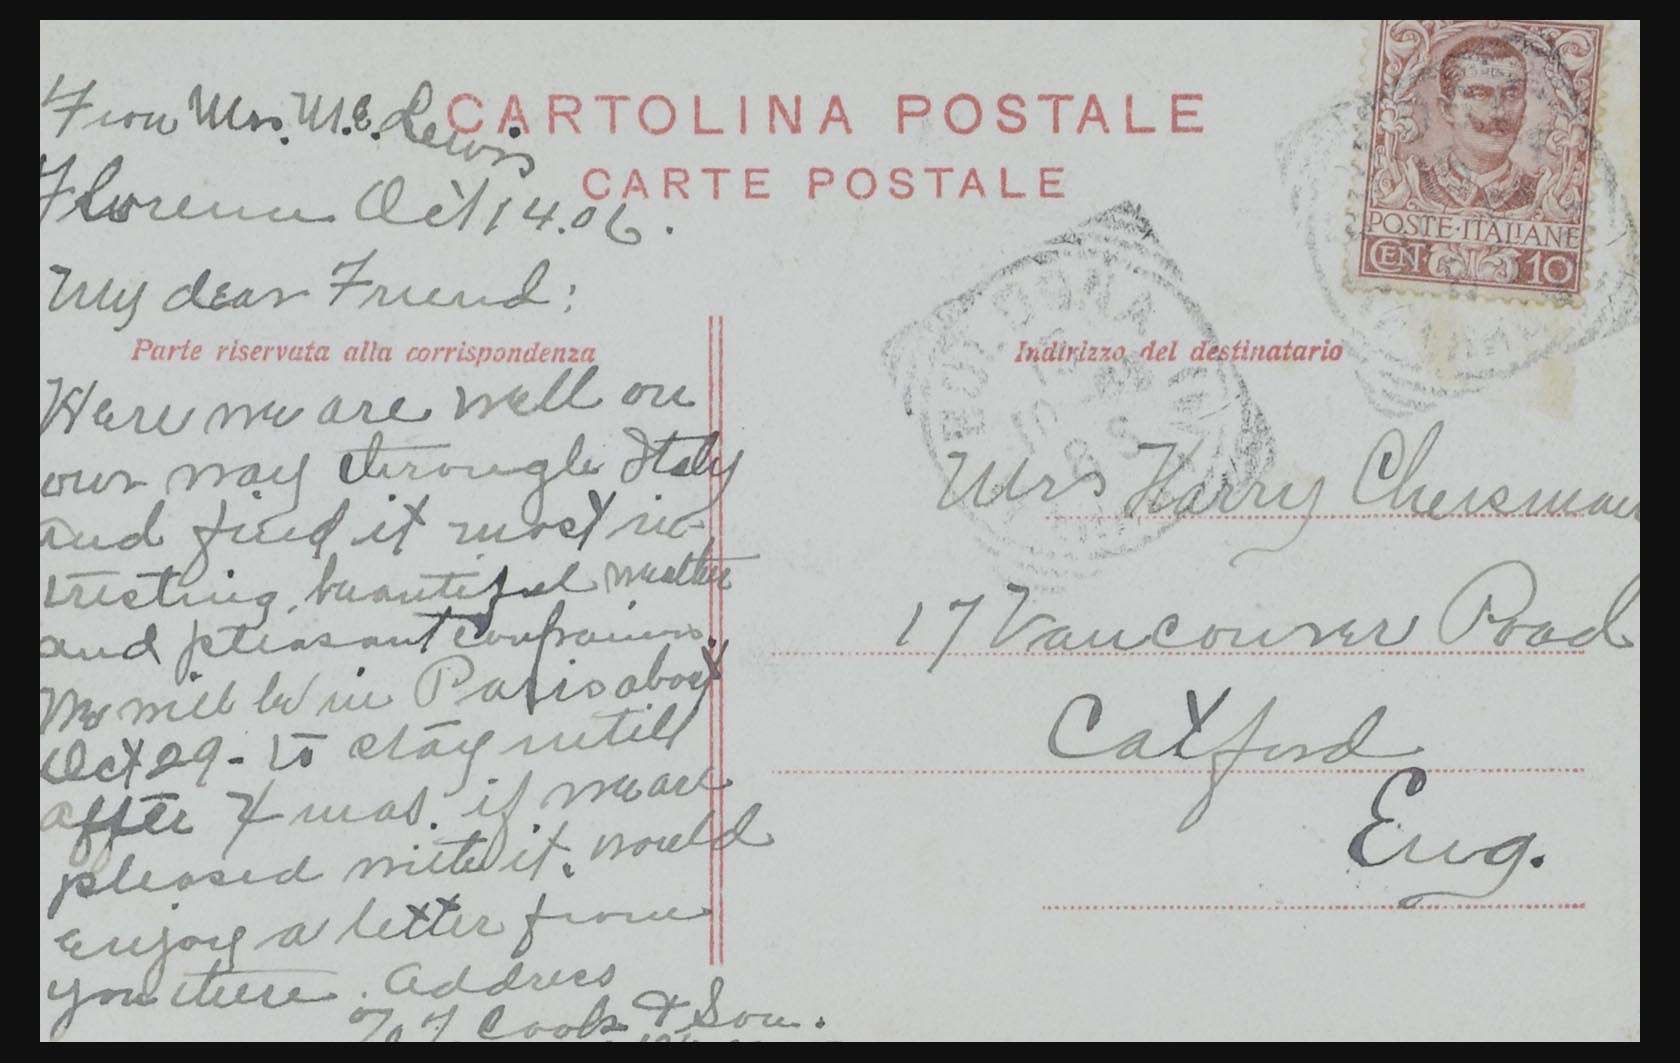 From Mrs. M. E. Lewis
Florence Oct 14.06.
My dear Friend:
Here we are well on
our way through Italy
and find it most in-
tresting, beautiful weather
and pleasant companions.
We will be in Paris about
Oct 29 - to stay until
after Xmas. if we are
pleased with it. would
enjoy a letter from
you there. address
Cook & Son.
CARTOLINA POSTALE
CARTE POSTALE
Parte riservata alla corrispondenza
Indirizzo del destinatario
POSTE·ITALIANE
CEN· 10
BOLOGNA
Mrs Harry Cheisman
17 Vancouver Road
Catford
Eng.